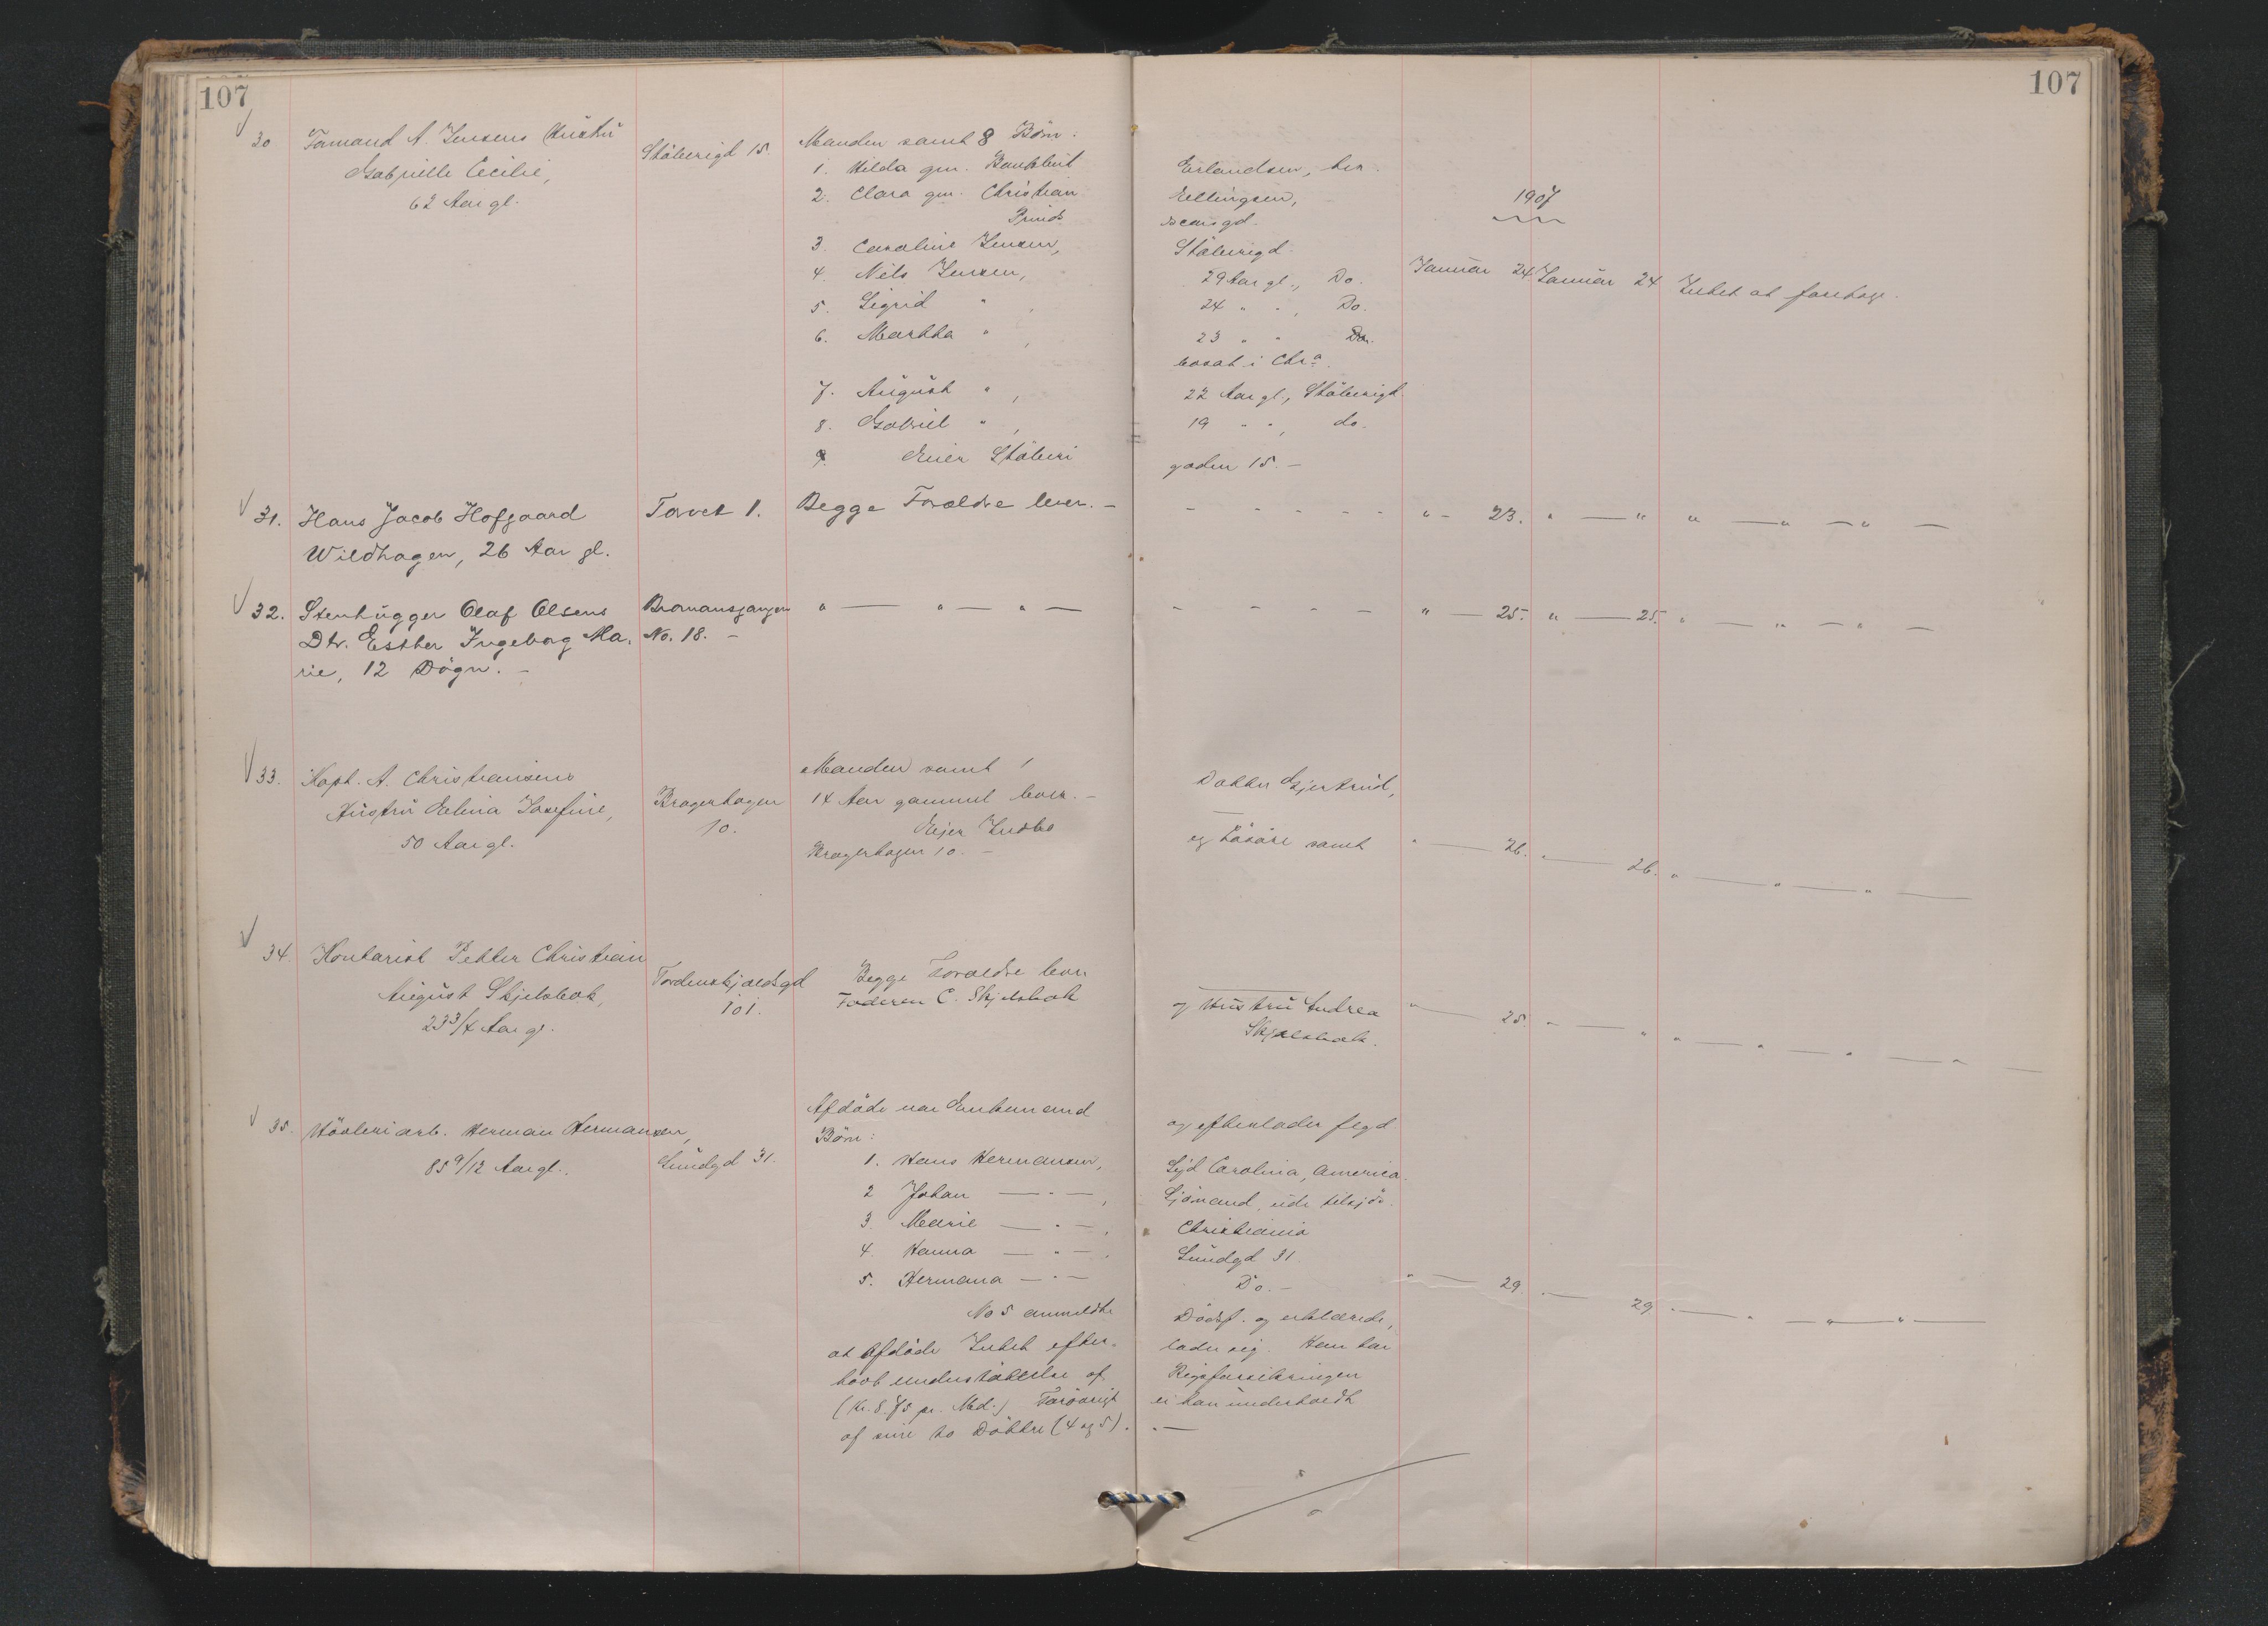 107
107
30 Formand A. Jensens Hustru
Gabrielle Cecilie,
62 Aar gl.
Støberigd 15.
Manden samt 8 Børn:
1. Hilda gm. Erlandsen, her.
2. Clara gm. Christian Ellingsen,
Prinds
3. Caroline Jensen, Støberigd.
4. Nils Jensen, 29 Aar gl., Do.
5. Sigrid " , 24 " " , Do.
6. Martha " , 23 " " Do.
bosat i Chr.a
7. August " , 22 Aar gl., Støberigd.
8. Gabriel " , 19 " " , do.
Eier Støberigaden 15. –
1907
Januar 24 Januar 24 Intet at foretage.
31. Hans Jacob Hofgaard
Wildhagen, 26 Aar gl.
Torvet 1.
Begge Forældre lever. –
" – 23. " — " " — " — " —
32. Stenhugger Olaf Olsens
Dtr. Esther Ingeborg Ma-
rie, 12 Døgn. –
Bromansgangen
No. 18. –
" — " — " —
" — 25. " — 25. " — " — " —
33. Kapt. A. Christiansens
Hustru Elina Josefine,
50 Aar gl.
Bragerhagen
10.
Manden samt 1 Datter Gjertrud,
14 Aar gammel lever. –
Eier Indbo og Løsøre samt
Bragerhagen 10. –
" — 26. " — 26. " — " — " —
34. Kontorist Petter Christian
August Skjelsbæk,
23 3/4 Aar gl.
Tordenskjoldsgd
101.
Begge Forældre lever
Faderen C. Skjelsbæk og Hustru Andrea
Skjelsbæk.
" — 25. " — " " — " — " — " —
35. Høvleriarb. Herman Hermansen,
85 9/12 Aar gl.
Sundgd 31.
Afdøde var Enkemand og efterlader flgd
Børn:
1. Hans Hermansen, Syd Carolina, America.
2 Johan — " — , Sjømand, ude tilsjøs.
3. Marie — " — , Christiania
4. Hanna — " — , Sundgd 31
5. Hermana — " — Do. –
No 5 anmeldte Dødsf. og erklærede,
at Afdøde Intet efter- lader sig. Han har
havt understøttelse af Rigsforsikringen
(Kr. 8.75 pr. Md.) Forøvrigt er han underholdt
af sine to Døttre (4 og 5). –
" — 29. " — 29 " — " — " — " —